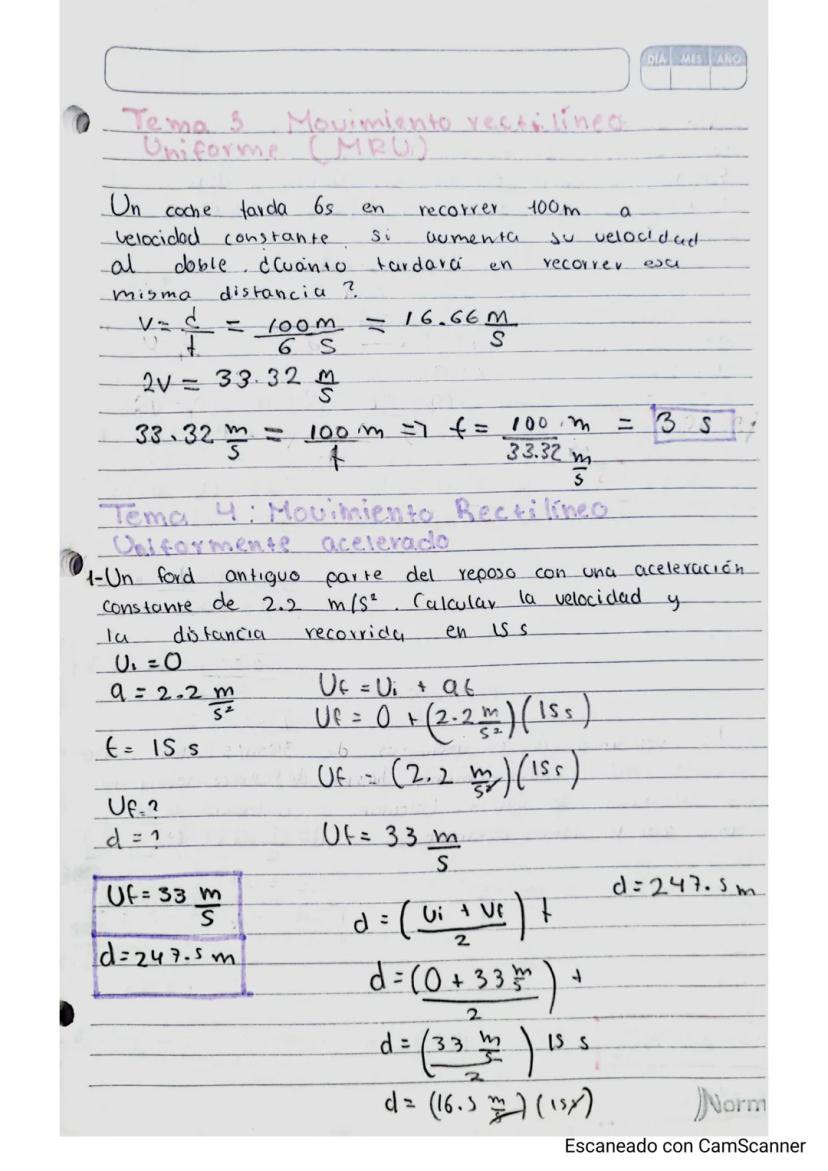 DÍA MES AÑO
Tema 3 Movimiento rectilíneo
Uniforme (MRU)
Un coche tarda 6s en recorrer 100m a
velocidad constante. si aumenta su velocidad
al doble. ¿Cuánto tardará en recorrer esa
misma distancia?
V = d/t = 100m/6 s = 16.66 m/s
2V = 33.32 m/s
33.32 m/s = 100 m/t => t = 100 m/33.32 m/s = 3 s
Tema 4: Movimiento Rectilíneo
Uniformente acelerado
1-Un ford antiguo parte del reposo con una aceleración
constante de 2.2 m/s². Calcular la velocidad y
la distancia recorrida en 15 s
Ui = 0
a = 2.2 m/s²
Uf = Ui + at
Uf = 0 + (2.2 m/s²)(15s)
t = 15 s
Uf = (2.2 m/s²)(15s)
Uf = ?
d = ?
Uf = 33 m/s
Uf = 33 m/s
d = 247.5 m
d = 247.5 m
d = (Ui + Vf/2) t
d = (0 + 33 m/s/2) t
d = (33 m/s/2) 15 s
d = (16.5 m/s)(15s)
Norm
Escaneado con CamScanner